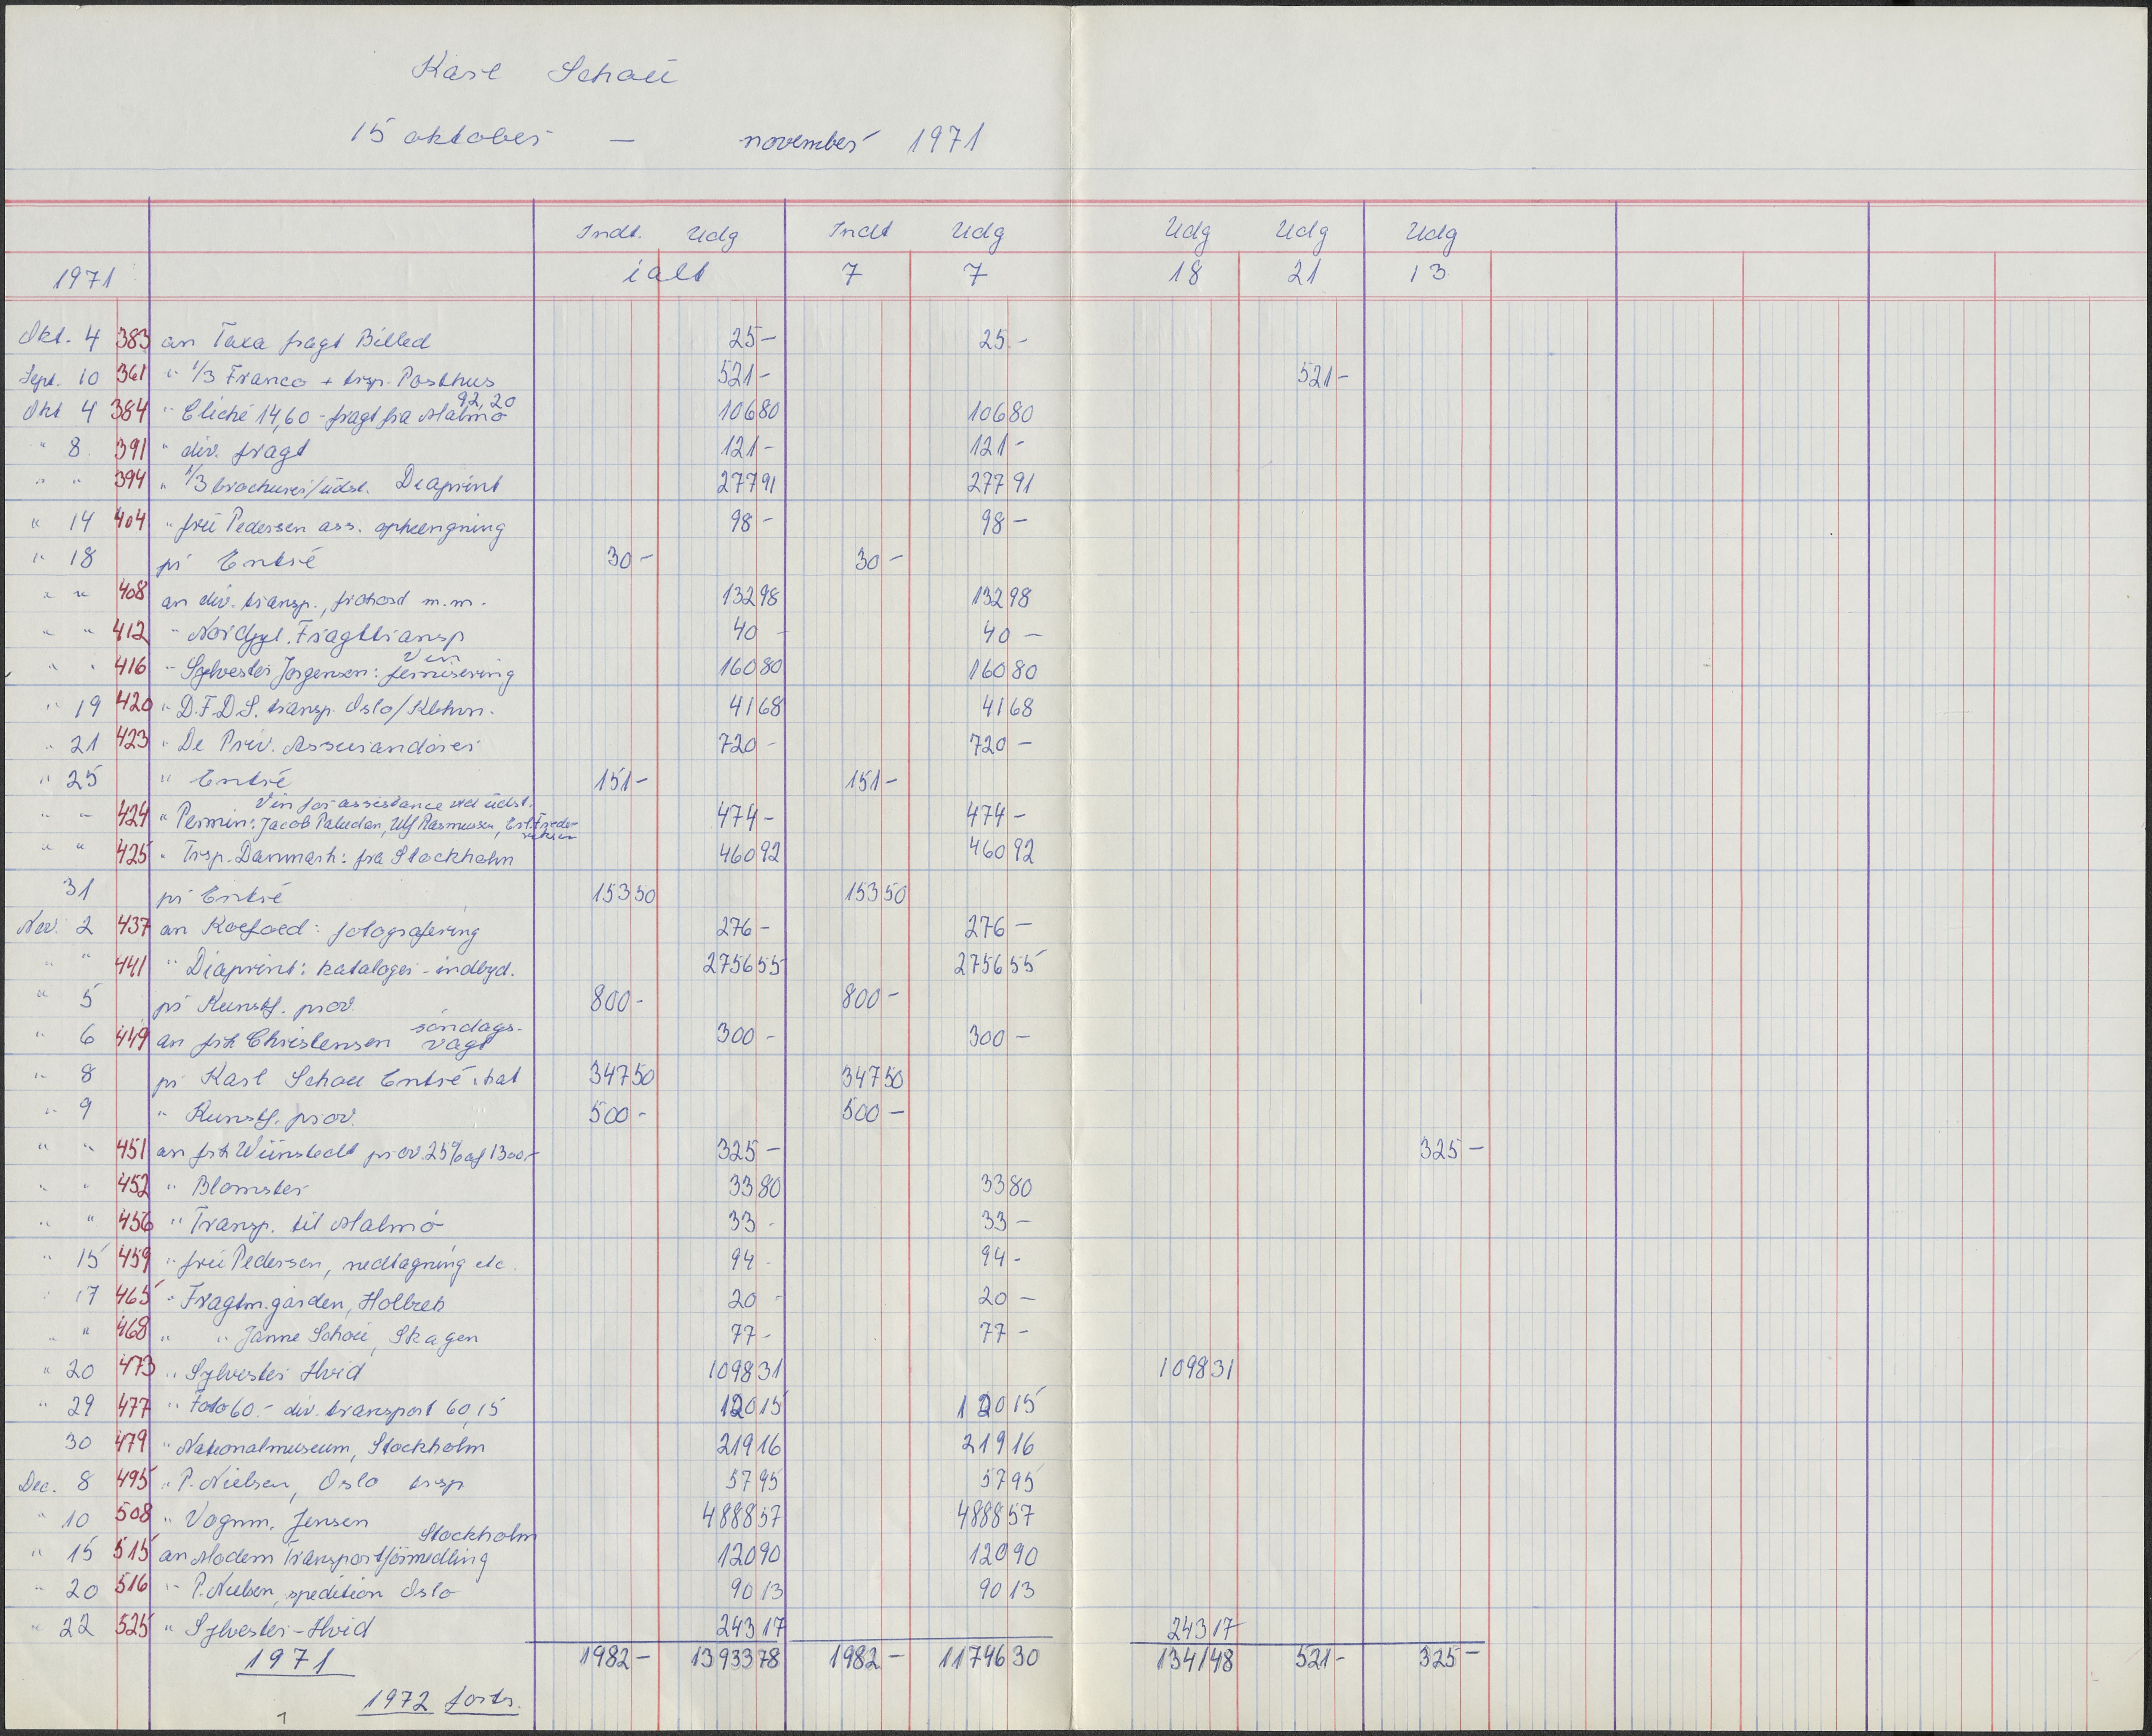 Karl Schou
15 oktober — november 1971
Indt. Udg Indt Udg Udg Udg Udg
1971 ialt 7 7 18 21 13
Okt. 4 383 an Taxa fragt Billed 25- 25.-
Sept. 10 361 " 1/3 Franco + trsp. Posthus 521- 521-
Okt 4 384 " Cliché 14,60 - fragt fra Malmö 92,20 106 80 106 80
" 8 391 " div. fragt 121- 121-
" " 394 " 1/3 brochurer/udst. Diaprint 277 91 277 91
" 14 404 " fru Pedersen ass. ophængning 98- 98-
" 18 pr Entré 30- 30-
" " 408 an div. transp., frokost m.m. 132 98 132 98
" " 412 " Nordjyl. Fragttransp 40 - 40 -
" " 416 " Sylvester Jørgensen: fernisering Vin 160 80 160 80
" 19 420 " D.F.D.S. transp. Oslo/Kbhvn. 41 68 41 68
" 21 423 " De Priv. Assurandører 720 - 720 -
" 25 " Entré 151- 151-
Vin for assistance ved udst.
" " 424 " Permin: Jacob Paludan, Ulf Rasmussen, Erl. Frederiksen 474- 474-
" " 425 " Trsp. Danmark: fra Stockholm 460 92 460 92
31 pr Entré 153 50 153 50
Nov. 2 437 an Koefoed: fotografering 276- 276-
" " 441 " Diaprint: kataloger - indbyd. 2756 55 2756 55
" 5 pr Kunstf. prov. 800- 800-
" 6 449 an frk Christensen søndags-vagt 300 - 300 -
" 8 pr Karl Schou Entré + kat 347 50 347 50
" 9 " Kunstf. prov. 500- 500-
" " 451 an frk Wünstedt prov. 25% af 1300,- 325- 325-
" " 452 " Blomster 33 80 33 80
" " 456 " Transp. til Malmö 33 - 33 -
" 15 459 " fru Pedersen, nedtagning etc. 94 - 94 -
" 17 465 " Fragtm.gården, Holbæk 20 - 20 -
" " 468 " " Janne Schou, Skagen 77- 77-
" 20 473 " Sylvester Hvid 1098 31 1098 31
" 29 477 " Foto 60.- div. transport 60,15 120 15 120 15
30 479 " Nationalmuseum, Stockholm 219 16 219 16
Dec. 8 495 " P. Nielsen, Oslo trsp 57 95 57 95
" 10 508 " Vognm. Jensen 4888 57 4888 57
" 15 515 an Modern Transportförmedling Stockholm 120 90 120 90
" 20 516 " P. Nielsen, spedition Oslo 90 13 90 13
" 22 525 " Sylvester-Hvid 243 17 243 17
1971 1982- 13933 78 1982- 11746 30 1341 48 521- 325-
1972 forts.